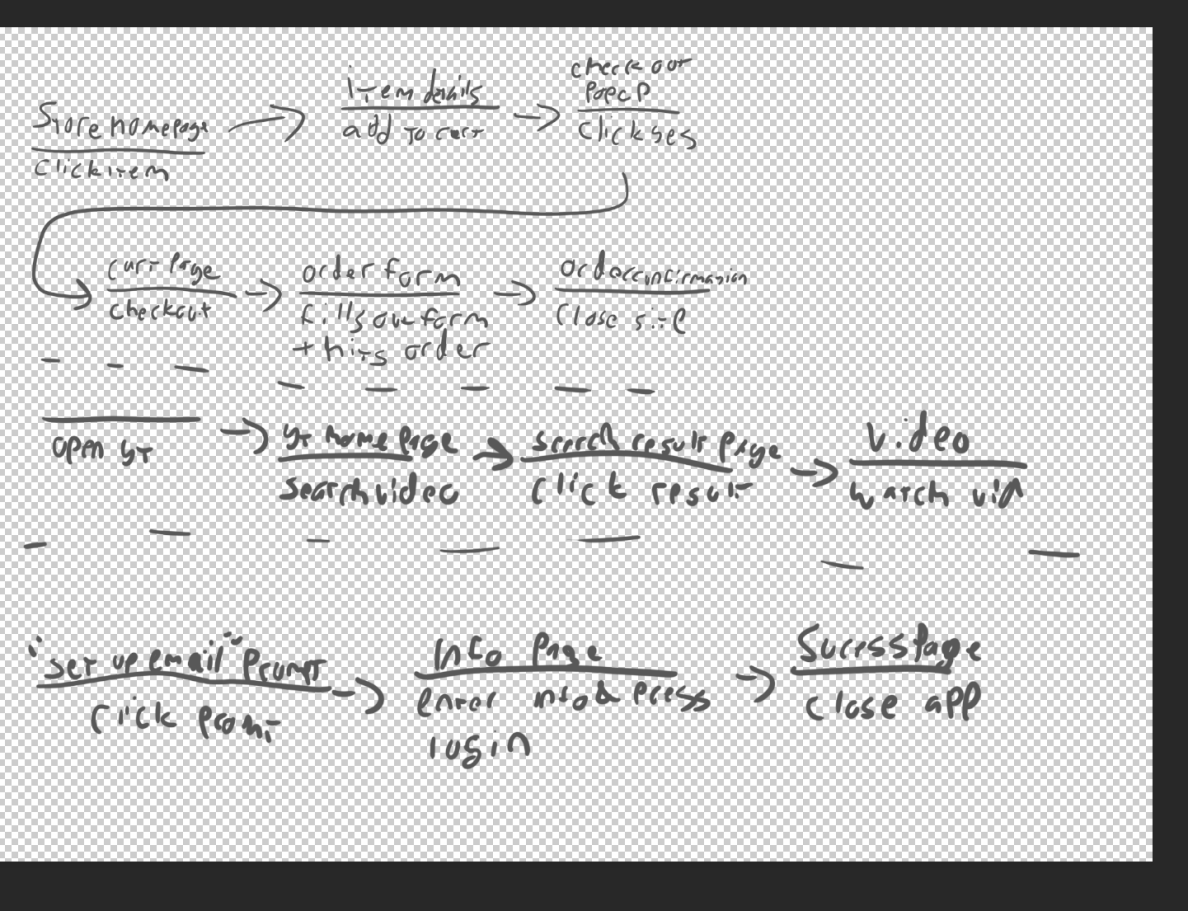 Store homepage
click item
item details
add to cart
check out
popup
click yes
cart page
checkout
order form
fills out form
+ hits order
order confirmation
close site
open yt
yt home page
search video
search result page
click result
video
watch vid
"set up email" prompt
click prompt
info page
enter info & press
login
Success page
close app